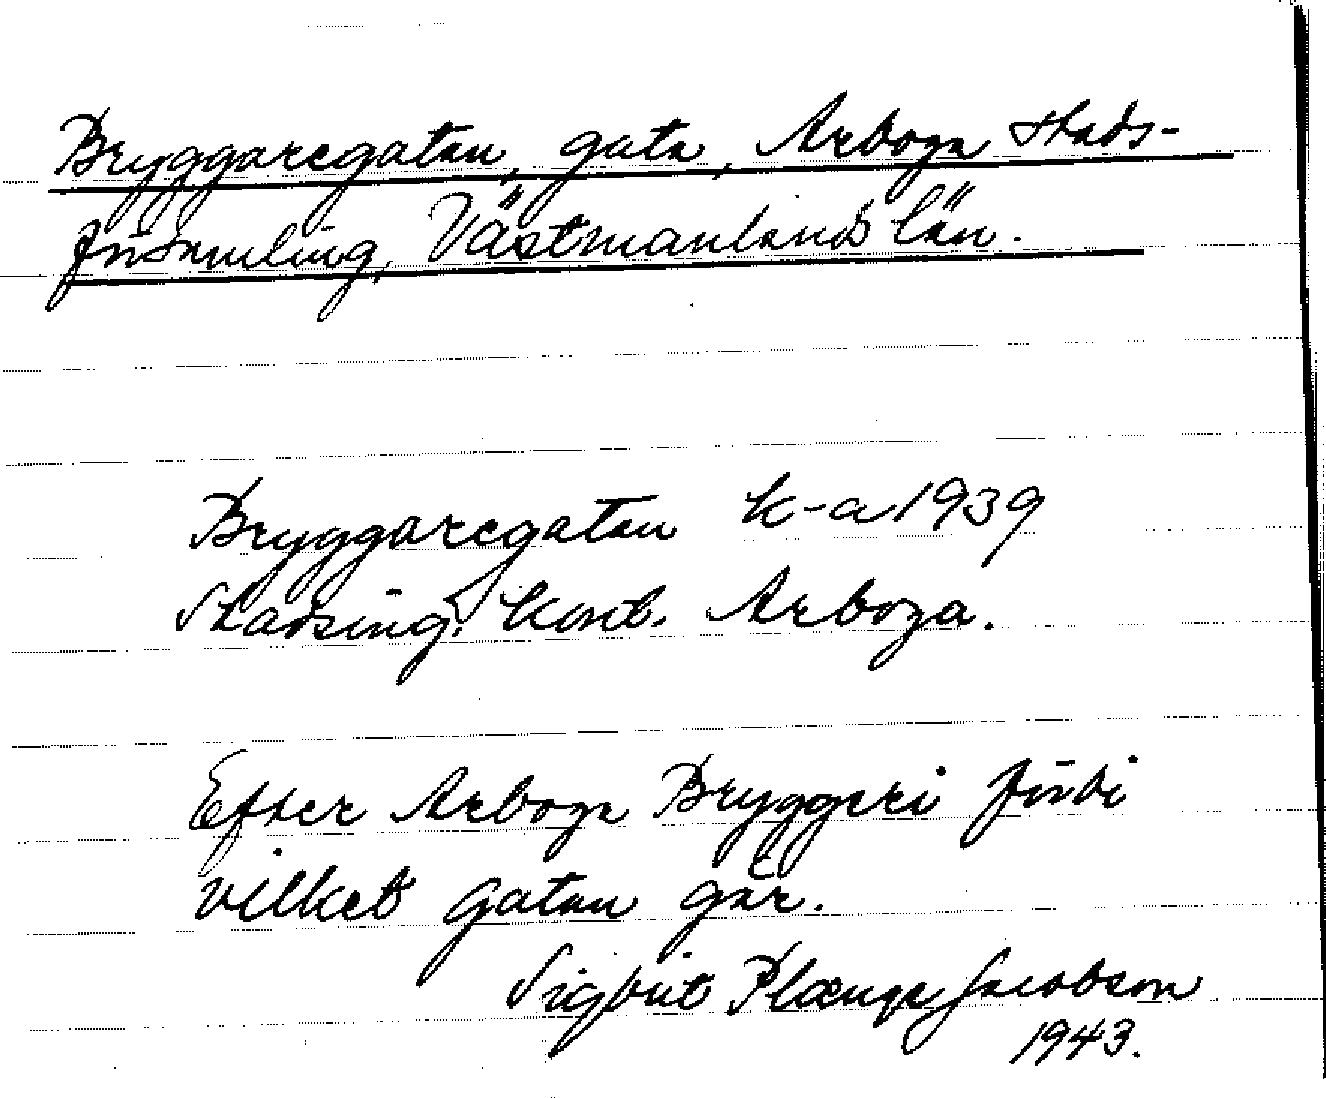 Bryggaregatan, gata, Arboga stads-
församling, Västmanlands län.
Bryggaregatan k-a 1939
Stadsing. kont. Arboga.
Efter Arboga Bryggeri förbi
vilket gatan går.
Sigbrit Plænge Jacobson
1943.